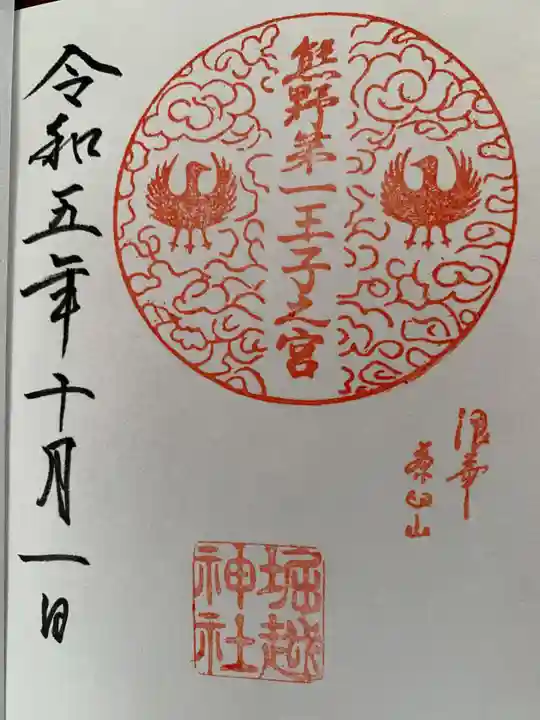 熊野第一王子之宮
浪華
茶臼山
堀越
神社
令和五年十月一日